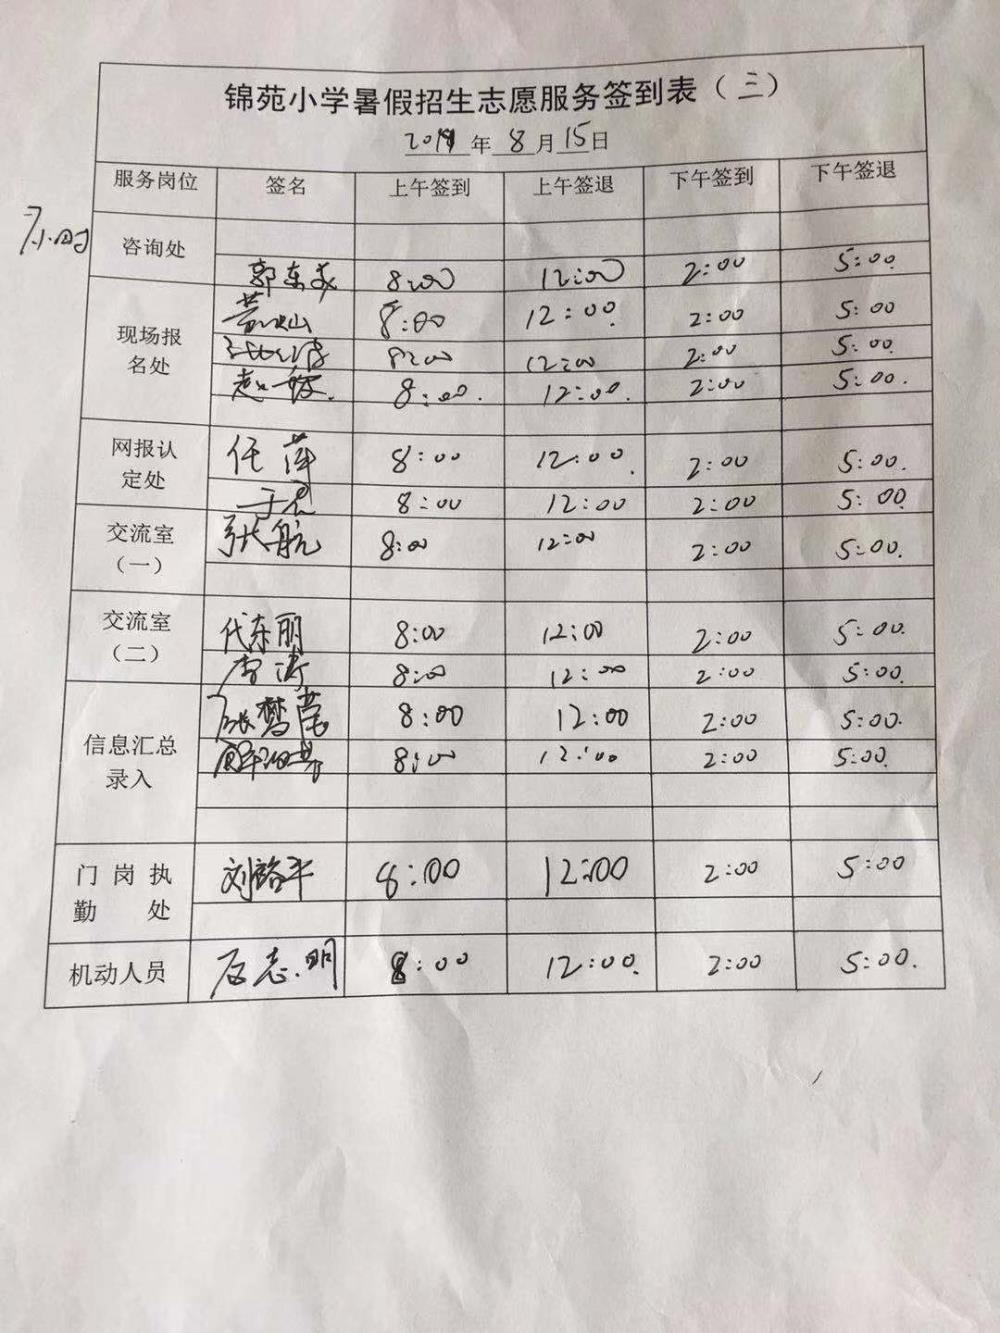 锦苑小学暑假招生志愿服务签到表（三）
年8月15日
服务岗位 签名 上午签到 上午签退 下午签到 下午签退
7小时
咨询处
8:00 12:00 2:00 5:00
现场报名处 8:00 12:00 2:00 5:00
8:00 12:00 2:00 5:00
8:00 12:00 2:00 5:00
网报认定处 任萍 8:00 12:00 2:00 5:00
8:00 12:00 2:00 5:00
交流室（一） 张航 8:00 12:00 2:00 5:00
交流室（二） 代东丽 8:00 12:00 2:00 5:00
李涛 8:00 12:00 2:00 5:00
信息汇总录入 张梦莹 8:00 12:00 2:00 5:00
8:00 12:00 2:00 5:00
门岗执勤处 刘裕平 8:00 12:00 2:00 5:00
机动人员 8:00 12:00 2:00 5:00